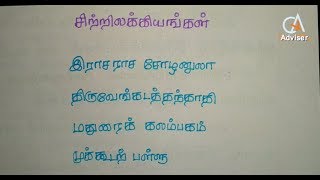 சிற்றிலக்கியங்கள்
இராசராச சோழனுலா
திருவேங்கடத்தந்தாதி
மதுரைக் கலம்பகம்
முக்கூடற் பள்ளு
CA
Adviser